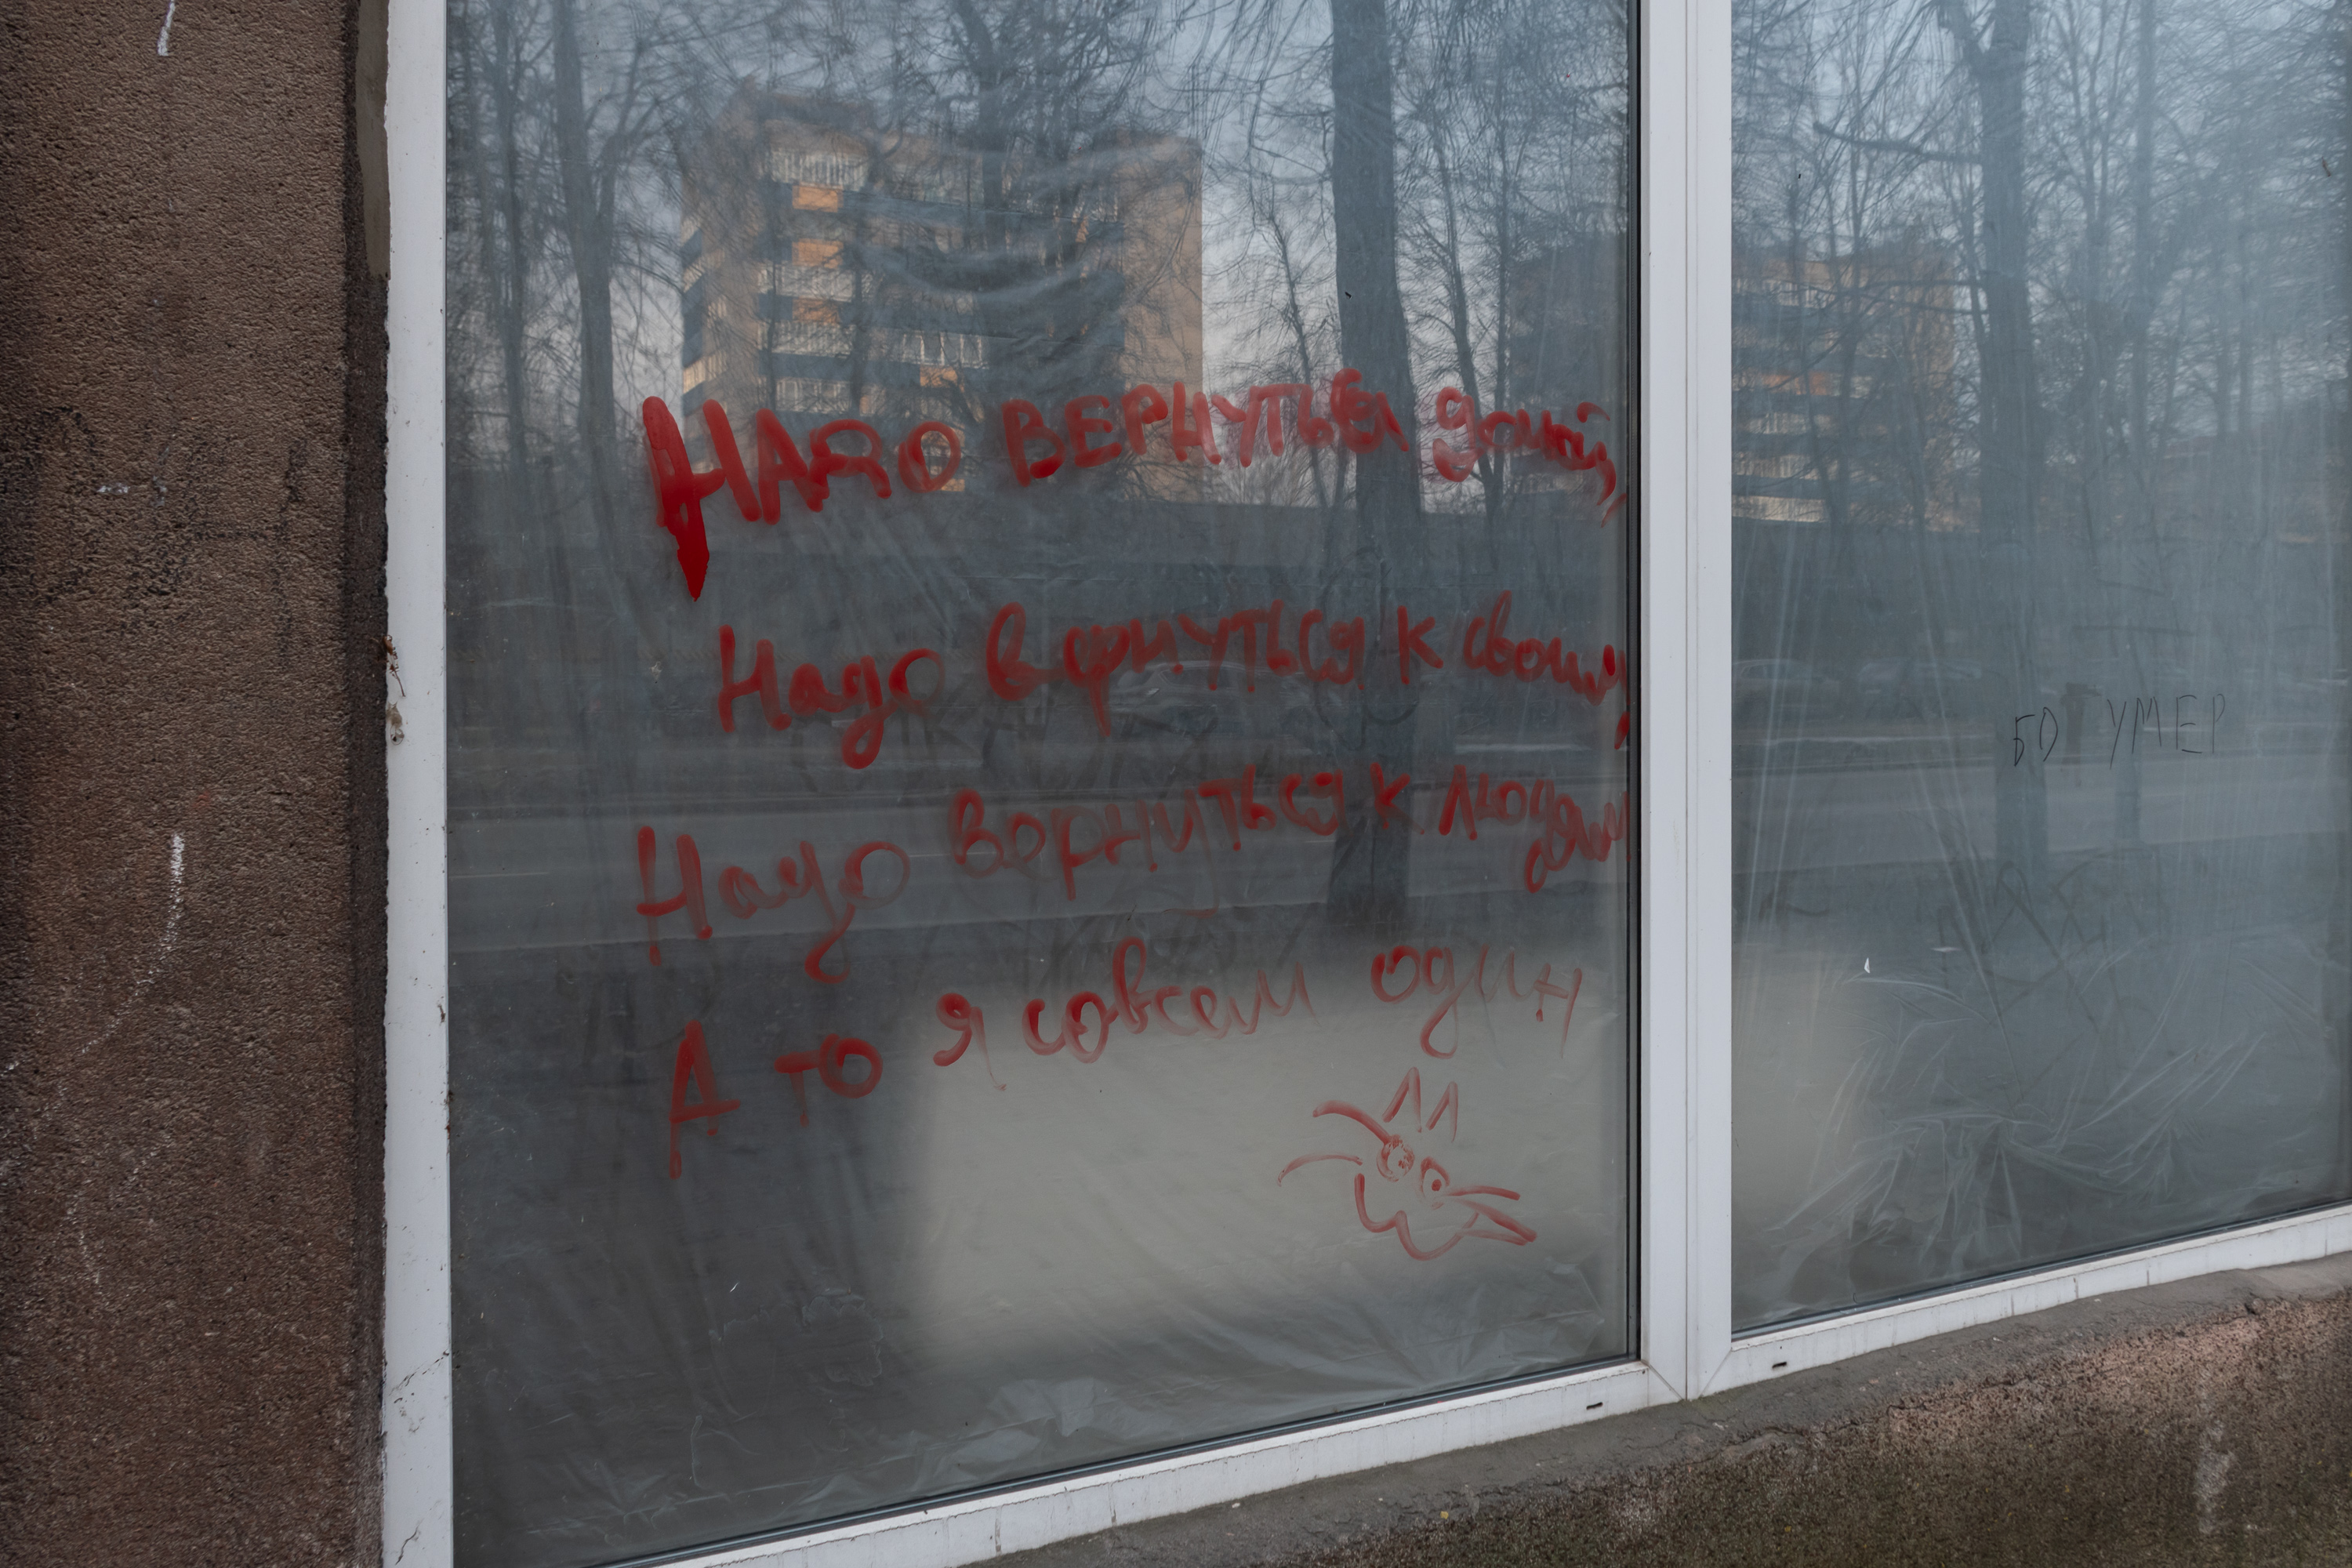 Надо вернуться домой,
Надо вернуться к своим,
Надо вернуться к людям
А то я совсем один
БО УМЕР